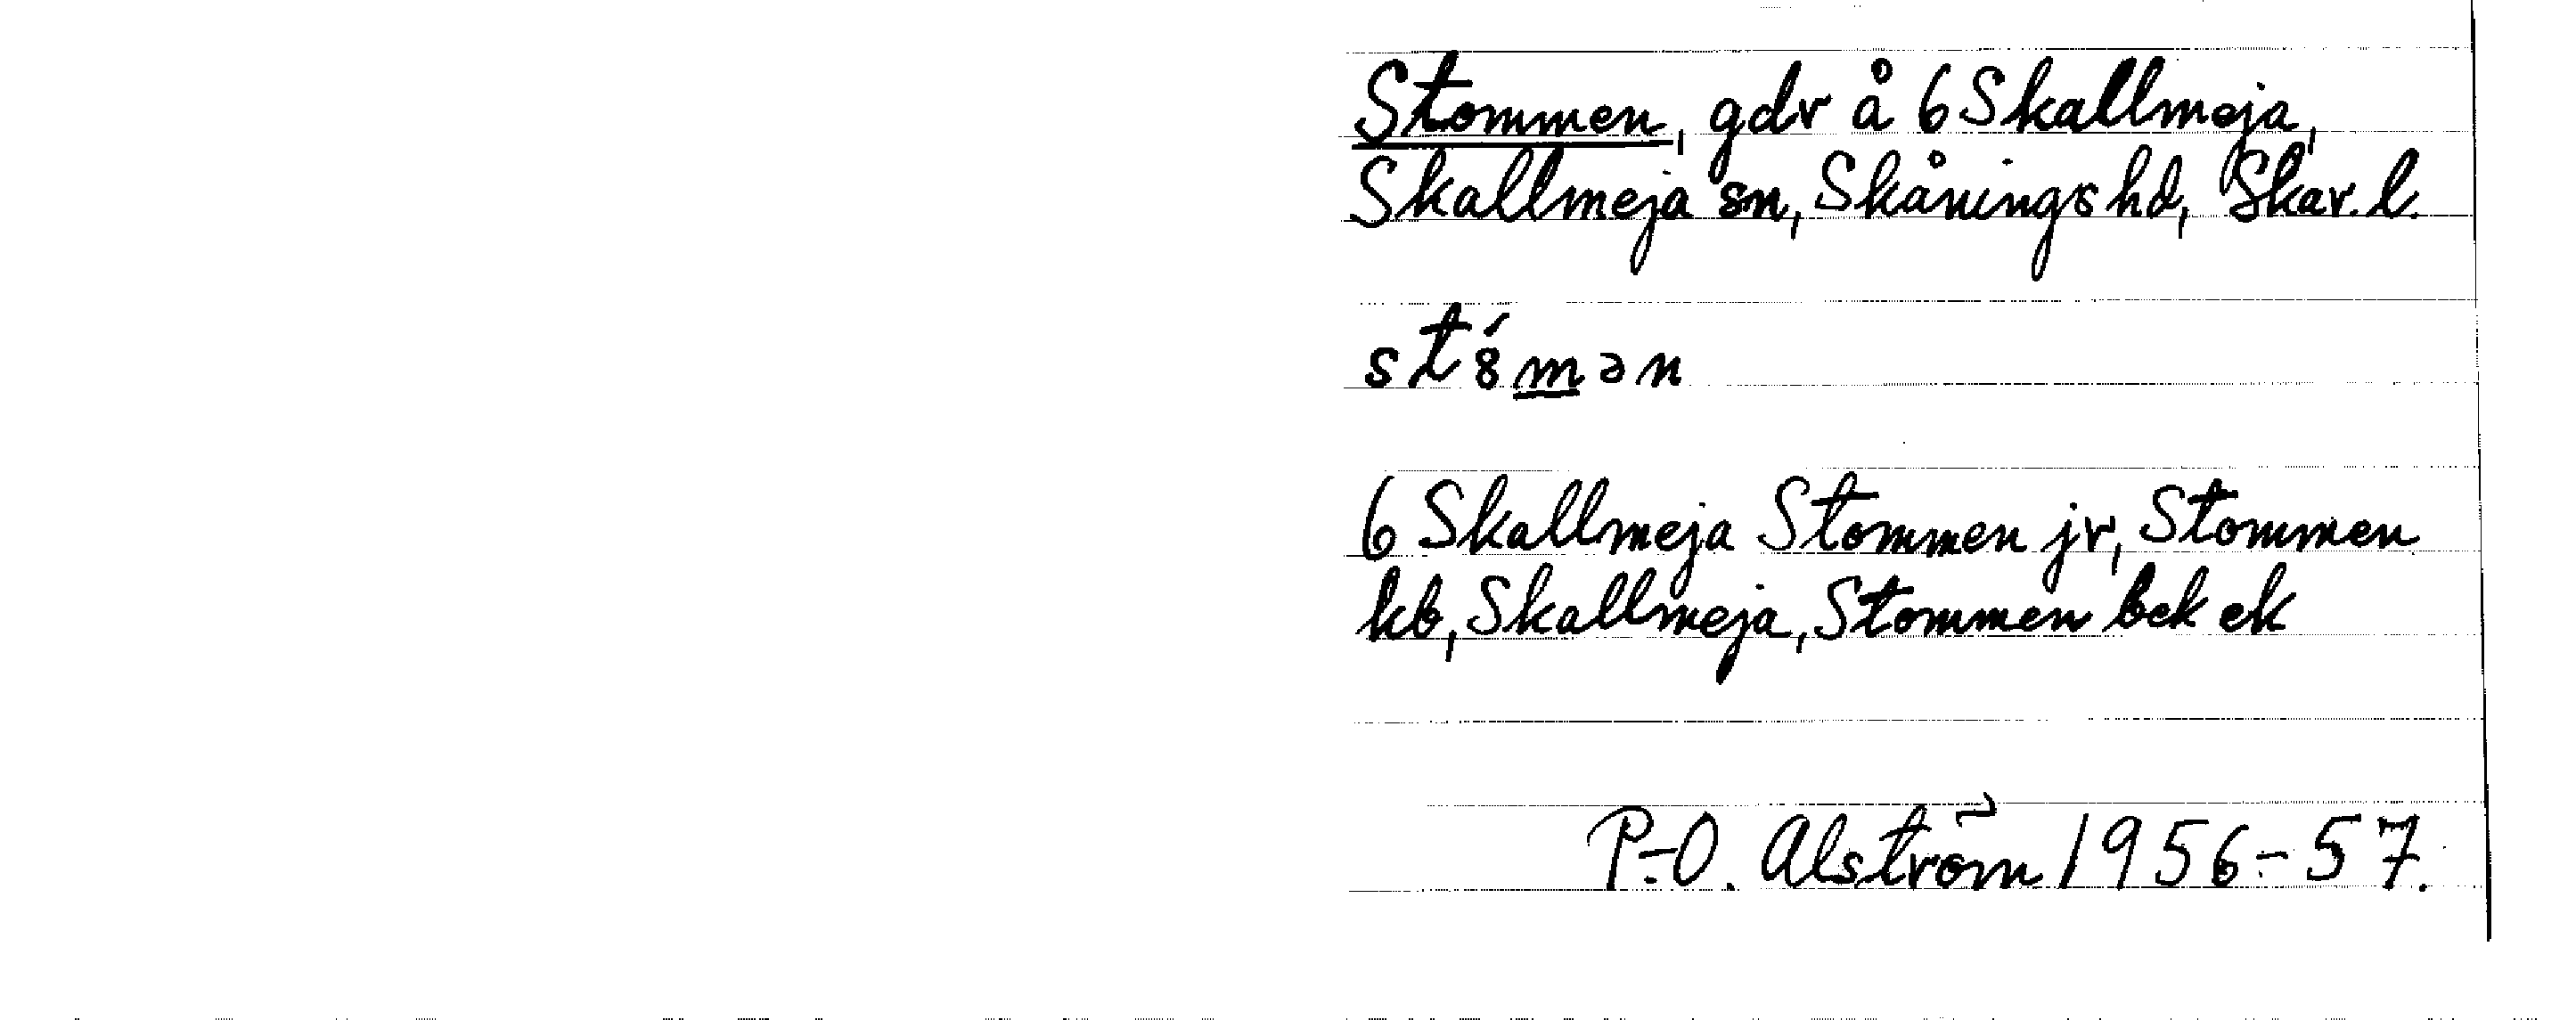 Stommen, gdr å 6 Skallmeja,
Skallmeja sn, Skånings hd, Skar. l.
st8́mən
6 Skallmeja Stommen jr, Stommen
kb, Skallmeja, Stommen bek ek
P.-O. Alström 1956-57.